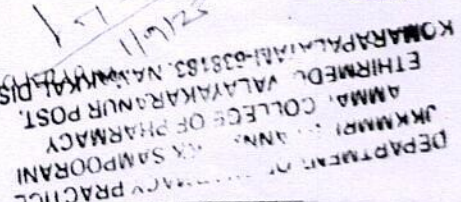 11/9/25
DEPARTMENT OF PRACTICE
SAMPOORANI
COLLEGE OF PHARMACY
ETHIRMEDU, VALAYAKARANUR POST,
KOMARAPALAYAM-638183, NAMAKKAL DIST